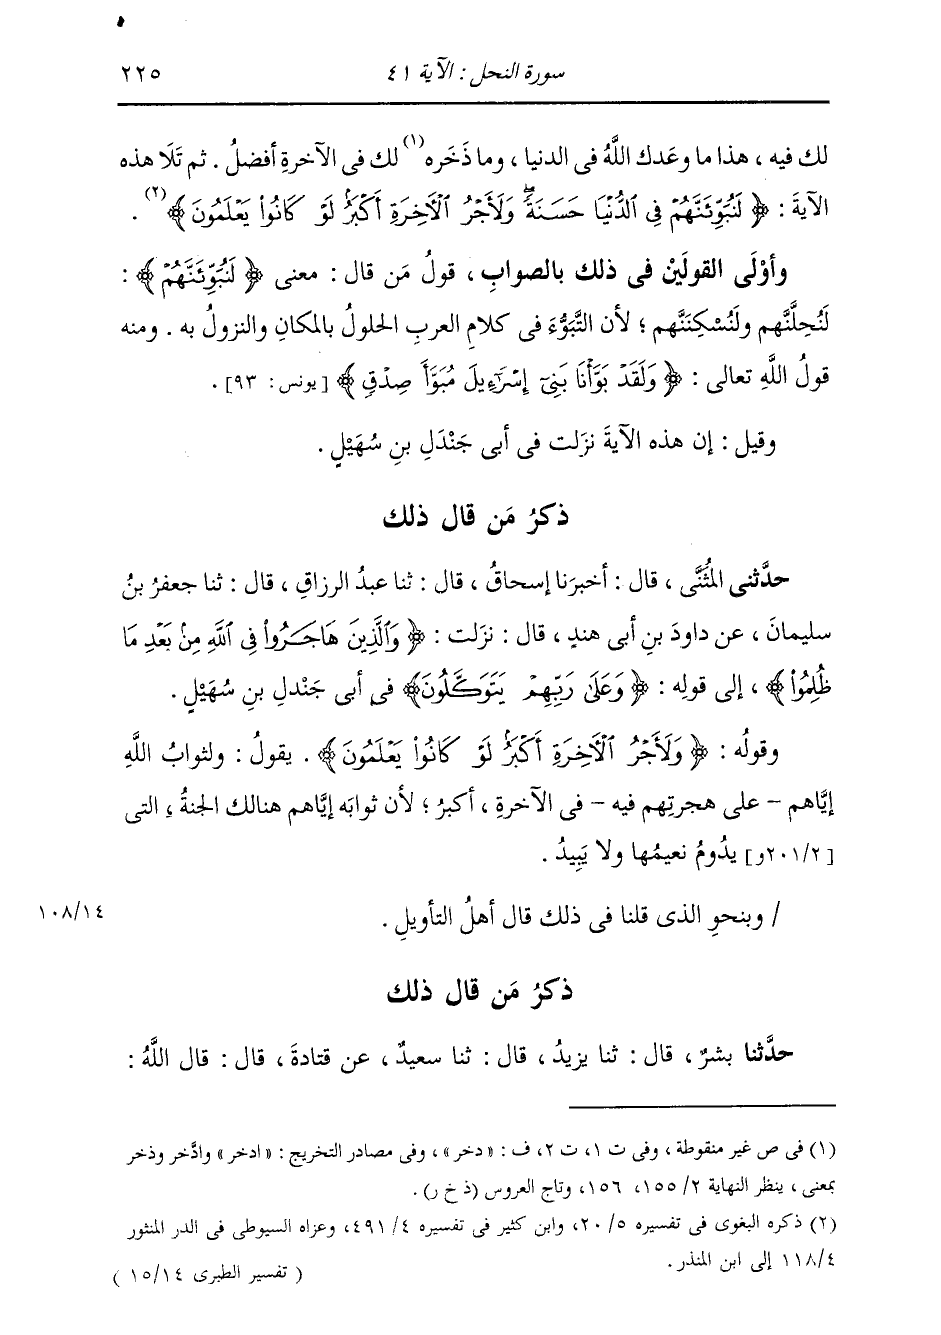 سورة النحل : الآية ٤١
٢٢٥
لك فيه ، هذا ما وعَدك اللَّهُ فى الدنيا ، وما ذَخَره(١) لك فى الآخرةِ أفضلُ . ثم تَلَا هذه
الآيةَ : ﴿ لَنُبَوِّئَنَّهُمْ فِى ٱلدُّنْيَا حَسَنَةً ۖ وَلَأَجْرُ ٱلْآخِرَةِ أَكْبَرُ ۚ لَوْ كَانُوا۟ يَعْلَمُونَ ﴾(٢) .
وأوْلَى القولَيْن فى ذلك بالصوابِ ، قولُ مَن قال : معنى ﴿ لَنُبَوِّئَنَّهُمْ ﴾ :
لَنُحِلَّنَّهم ولَنُسْكِنَنَّهم ؛ لأن التَّبَوُّءَ فى كلامِ العربِ الحلولُ بالمكانِ والنزولُ به . ومنه
قولُ اللَّهِ تعالى : ﴿ وَلَقَدْ بَوَّأْنَا بَنِىٓ إِسْرَٰٓءِيلَ مُبَوَّأَ صِدْقٍ ﴾ [ يونس : ٩٣] .
وقيل : إن هذه الآيةَ نزَلت فى أبى جَنْدَلِ بنِ سُهَيْلٍ .
ذكرُ مَن قال ذلك
حدَّثنى المُثَنَّى ، قال : أخبرَنا إسحاقُ ، قال : ثنا عبدُ الرزاقِ ، قال : ثنا جعفرُ بنُ
سليمانَ ، عن داودَ بنِ أبى هندٍ ، قال : نزَلت : ﴿ وَٱلَّذِينَ هَاجَرُوا۟ فِى ٱللَّهِ مِنۢ بَعْدِ مَا
ظُلِمُوا۟ ﴾ ، إلى قولِه : ﴿ وَعَلَىٰ رَبِّهِمْ يَتَوَكَّلُونَ ﴾ فى أبى جَنْدلِ بنِ سُهَيْلٍ .
وقولُه : ﴿ وَلَأَجْرُ ٱلْآخِرَةِ أَكْبَرُ ۚ لَوْ كَانُوا۟ يَعْلَمُونَ ﴾ . يقولُ : ولثوابُ اللَّهِ
إيَّاهم - على هجرتِهم فيه - فى الآخرةِ ، أكبرُ ؛ لأن ثوابَه إيَّاهم هنالك الجنةُ ، التى
[٢٠١/٢و] يدُومُ نعيمُها ولا يَبِيدُ .
/ وبنحوِ الذى قلنا فى ذلك قال أهلُ التأويلِ .
١٠٨/١٤
ذكرُ مَن قال ذلك
حدَّثنا بشرٌ ، قال : ثنا يزيدُ ، قال : ثنا سعيدٌ ، عن قتادةَ ، قال : قال اللَّهُ :
(١) فى ص غير منقوطة ، وفى ت ١، ت ٢، ف : « دخر » ، وفى مصادر التخريج : « ادخر » وادَّخر وذخر
بمعنى ، ينظر النهاية ٢/ ١٥٥، ١٥٦، وتاج العروس (ذ خ ر) .
(٢) ذكره البغوى فى تفسيره ٥/ ٢٠، وابن كثير فى تفسيره ٤/ ٤٩١، وعزاه السيوطى فى الدر المنثور
١١٨/٤ إلى ابن المنذر .
( تفسير الطبرى ١٥/١٤ )